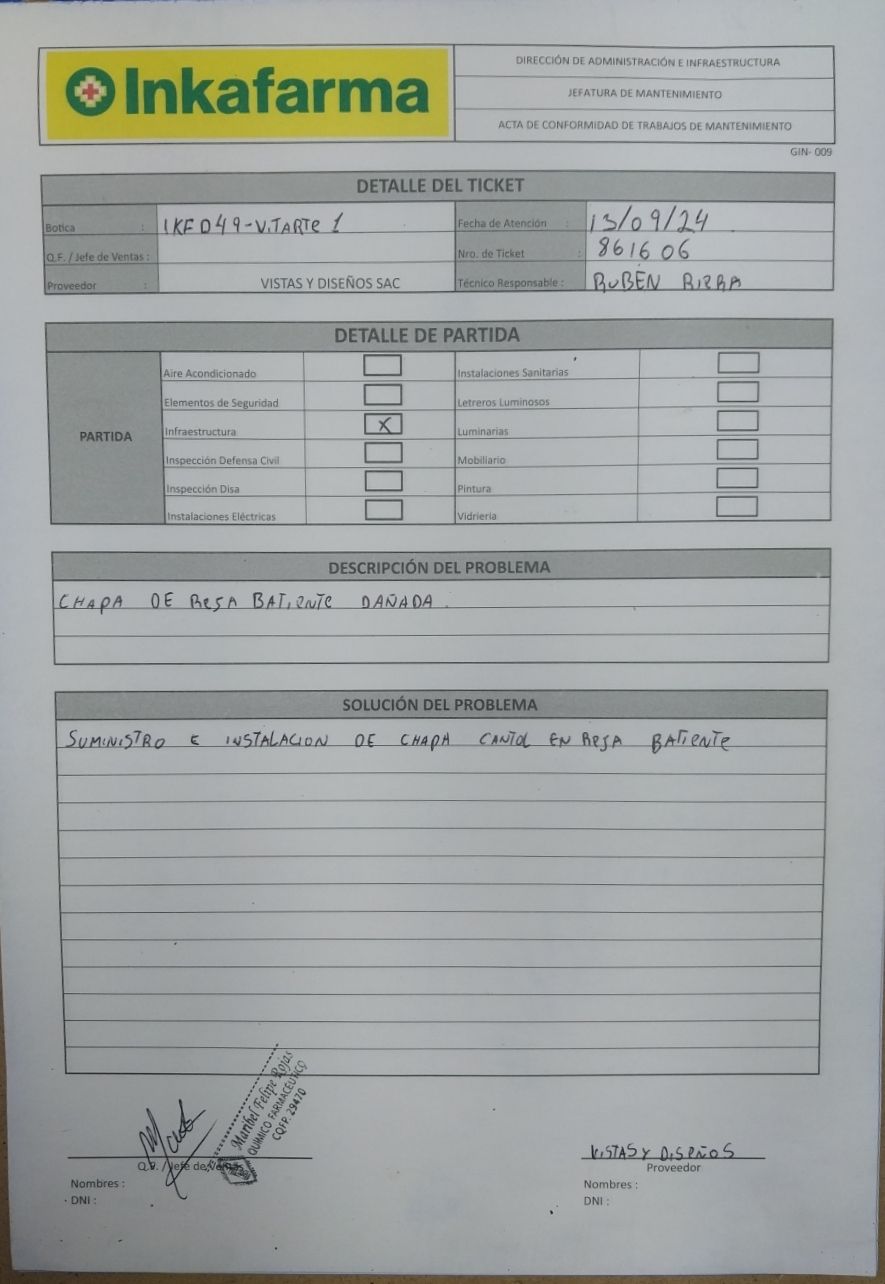 Inkafarma
DIRECCIÓN DE ADMINISTRACIÓN E INFRAESTRUCTURA
JEFATURA DE MANTENIMIENTO
ACTA DE CONFORMIDAD DE TRABAJOS DE MANTENIMIENTO
GIN- 009
DETALLE DEL TICKET
Botica : IKF D49-VITARTE 1 Fecha de Atención : 13/09/24
Q.F. / Jefe de Ventas : Nro. de Ticket : 861606
Proveedor : VISTAS Y DISEÑOS SAC Técnico Responsable : RUBÉN
DETALLE DE PARTIDA
PARTIDA
Aire Acondicionado Instalaciones Sanitarias
Elementos de Seguridad Letreros Luminosos
Infraestructura X Luminarias
Inspección Defensa Civil Mobiliario
Inspección Disa Pintura
Instalaciones Eléctricas Vidrieria
DESCRIPCIÓN DEL PROBLEMA
CHAPA DE REJA BATIENTE DAÑADA.
SOLUCIÓN DEL PROBLEMA
SUMINISTRO E INSTALACION DE CHAPA CANTOL EN REJA BATIENTE
Maribel Felipe Rojas
QUIMICO FARMACÉUTICO
CQFP. 29470
Q.F. / Jefe de Ventas
Nombres :
DNI :
VISTAS Y DISEÑOS
Proveedor
Nombres :
DNI :